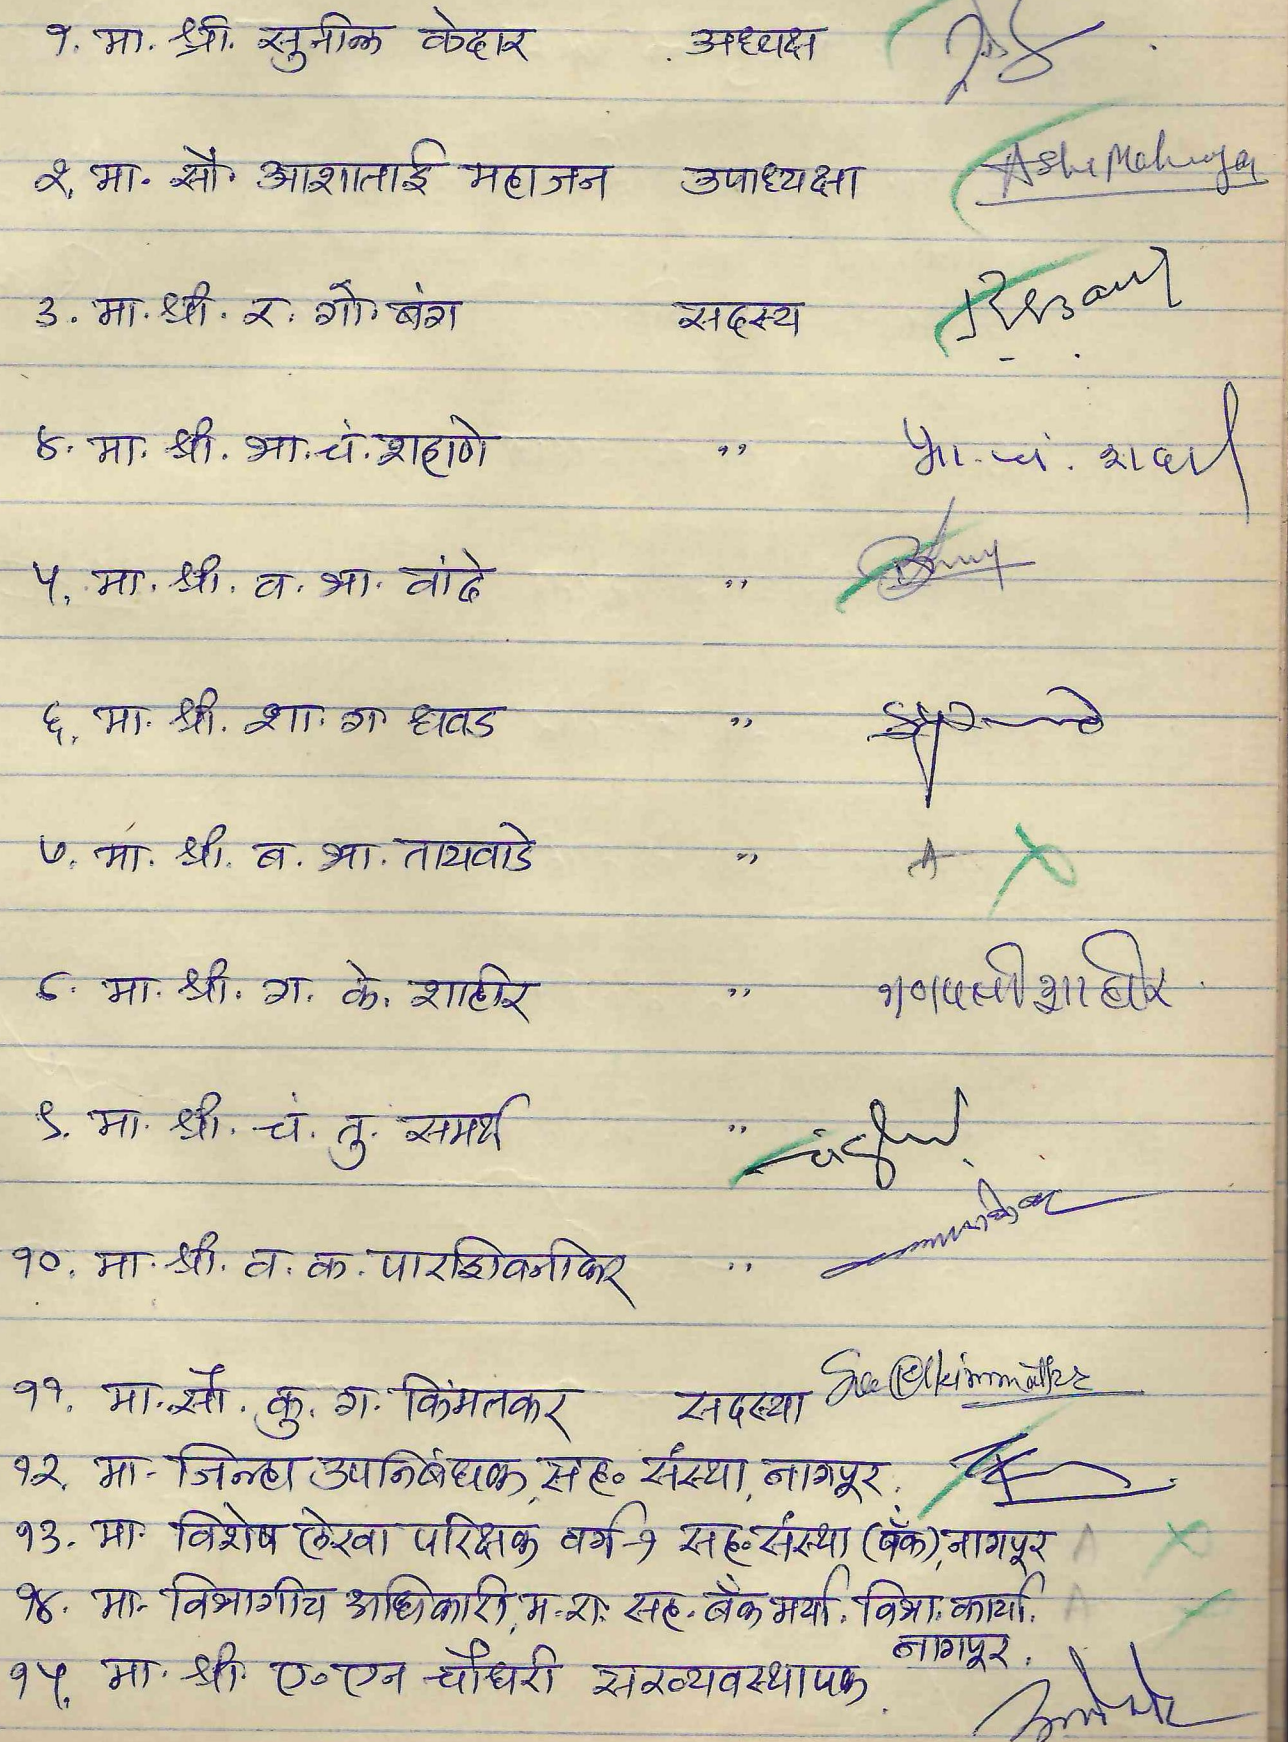 १. मा. श्री. सुनील केदार अध्यक्ष
२. मा. सौ. आशाताई महाजन उपाध्यक्षा Asha Mahajan
३. मा. श्री. र. गो. बंग सदस्य
४. मा. श्री. भा. चं. शहाणे ,, भा. चं. शहाणे
५. मा. श्री. व. भा. वांदे ,,
६. मा. श्री. शा. ग. धवड ,,
७. मा. श्री. ब. भा. तायवाडे ,, A
८. मा. श्री. ग. के. शाहीर ,, गणपती शाहीर
९. मा. श्री. चं. तु. समर्थ ,,
१०. मा. श्री. व. क. पारशिवनीकर ,,
११. मा. सौ. कु. ग. किंमतकर सदस्या
१२. मा. जिल्हा उपनिबंधक, सह० संस्था, नागपूर.
१३. मा. विशेष लेखा परिक्षक वर्ग-१ सह. संस्था (बँक), नागपूर A
१४. मा. विभागीय अधिकारी, म. रा. सह. बँक मर्या. विभा. कार्या. A
नागपूर.
१५. मा. श्री. ए० एन चौधरी सरव्यवस्थापक